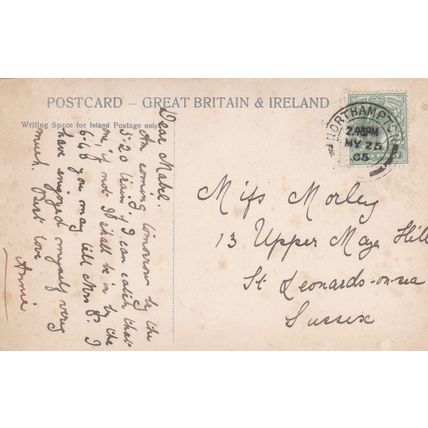 POSTCARD – GREAT BRITAIN & IRELAND
Writing Space for Inland Postage only
Dear Mabel.
Am coming tomorrow by the
5.20 train if I can catch that
one, if not I shall be in by the
6.46 you may tell Mrs B. I
have enjoyed myself very
much. Best love
Annie
NORTHAMPTON
MY 25
05
Miss Morley
13 Upper Maze Hill
St. Leonards-on-sea
Sussex